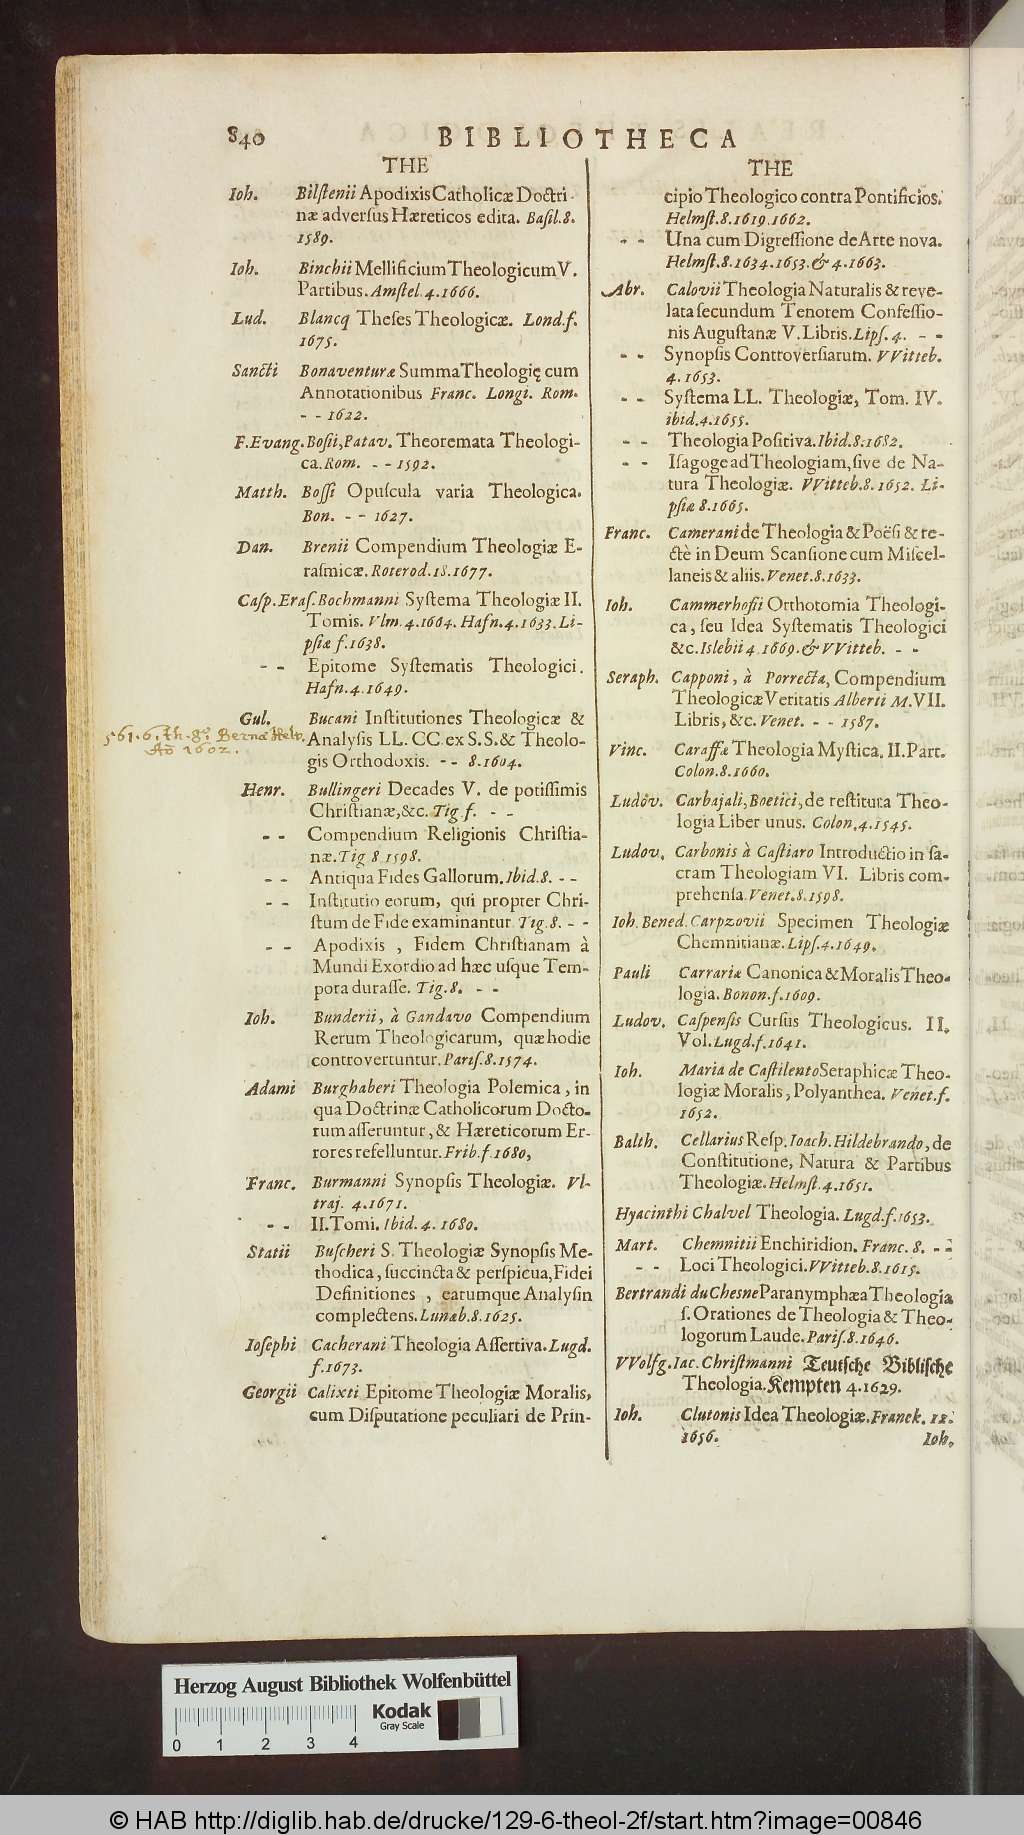 840
BIBLIOTHECA
THE
Ioh. Bilſtenii Apodixis Catholicæ Doctri-
næ adverſus Hæreticos edita. Baſil. 8.
1589.
Ioh. Binchii Mellificium Theologicum V.
Partibus. Amſtel. 4. 1666.
Lud. Blancq Theſes Theologicæ. Lond. f.
1675.
Sancti Bonaventuræ Summa Theologię cum
Annotationibus Franc. Longi. Rom.
- - 1622.
F. Evang. Boſii, Patav. Theoremata Theologi-
ca. Rom. - - 1592.
Matth. Boſſi Opuſcula varia Theologica.
Bon. - - 1627.
Dan. Brenii Compendium Theologiæ E-
raſmicæ. Roterod. 18. 1677.
Caſp. Eraſ. Bochmanni Syſtema Theologiæ II.
Tomis. Vlm. 4. 1604. Hafn. 4. 1633. Li-
pſiæ f. 1638.
- - Epitome Syſtematis Theologici.
Hafn. 4. 1649.
Gul. Bucani Inſtitutiones Theologicæ &
561. 6. Th. 8º. Bernæ Helv.
Aō 1602.
Analyſis LL. CC. ex S. S. & Theolo-
gis Orthodoxis. - - 8. 1604.
Henr. Bullingeri Decades V. de potiſſimis
Chriſtianæ, &c. Tig. f. - -
- - Compendium Religionis Chriſtia-
næ. Tig. 8. 1598.
- - Antiqua Fides Gallorum. Ibid. 8. - -
- - Inſtitutio eorum, qui propter Chri-
ſtum de Fide examinantur Tig. 8. - -
- - Apodixis, Fidem Chriſtianam à
Mundi Exordio ad hæc uſque Tem-
pora duraſſe. Tig. 8. - -
Ioh. Bunderii, à Gandavo Compendium
Rerum Theologicarum, quæ hodie
controvertuntur. Pariſ. 8. 1574.
Adami Burghaberi Theologia Polemica, in
qua Doctrinæ Catholicorum Docto-
rum aſſeruntur, & Hæreticorum Er-
rores refelluntur. Frib. f. 1680,
Franc. Burmanni Synopſis Theologiæ. Vl-
traj. 4. 1671.
- - II. Tomi. Ibid. 4. 1680.
Statii Buſcheri S. Theologiæ Synopſis Me-
thodica, ſuccincta & perſpicua, Fidei
Definitiones, earumque Analyſin
complectens. Lunæb. 8. 1625.
Ioſephi Cacherani Theologia Aſſertiva. Lugd.
f. 1673.
Georgii Calixti Epitome Theologiæ Moralis,
cum Diſputatione peculiari de Prin-
THE
cipio Theologico contra Pontificios.
Helmſt. 8. 1619. 1662.
- - Una cum Digreſſione de Arte nova.
Helmſt. 8. 1634. 1653. & 4. 1663.
Abr. Calovii Theologia Naturalis & reve-
lata ſecundum Tenorem Confeſſio-
nis Auguſtanæ V. Libris. Lipſ. 4. - -
- - Synopſis Controverſiarum. VVitteb.
4. 1653.
- - Syſtema LL. Theologiæ, Tom. IV.
ibid. 4. 1655.
- - Theologia Poſitiva. Ibid. 8. 1682.
- - Iſagoge ad Theologiam, ſive de Na-
tura Theologiæ. VVitteb. 8. 1652. Li-
pſiæ 8. 1665.
Franc. Camerani de Theologia & Poëſi & re-
ctè in Deum Scanſione cum Miſcel-
laneis & aliis. Venet. 8. 1633.
Ioh. Cammerhofii Orthotomia Theologi-
ca, ſeu Idea Syſtematis Theologici
&c. Islebii 4. 1669. & VVitteb. - -
Seraph. Capponi, à Porrecta, Compendium
Theologicæ Veritatis Alberti M. VII.
Libris, &c. Venet. - - 1587.
Vinc. Caraffæ Theologia Myſtica. II. Part.
Colon. 8. 1660.
Ludov. Carbajali, Boetici, de reſtituta Theo-
logia Liber unus. Colon. 4. 1545.
Ludov. Carbonis à Coſtiaro Introductio in ſa-
cram Theologiam VI. Libris com-
prehenſa. Venet. 8. 1598.
Ioh. Bened. Carpzovii Specimen Theologiæ
Chemnitianæ. Lipſ. 4. 1649.
Pauli Carrariæ Canonica & Moralis Theo-
logia. Bonon. f. 1609.
Ludov. Caſpenſis Curſus Theologicus. II.
Vol. Lugd. f. 1641.
Ioh. Maria de Caſtilento Seraphicæ Theo-
logiæ Moralis, Polyanthea. Venet. f.
1652.
Balth. Cellarius Reſp. Ioach. Hildebrando, de
Conſtitutione, Natura & Partibus
Theologiæ. Helmſt. 4. 1651.
Hyacinthi Chalvel Theologia. Lugd. f. 1653.
Mart. Chemnitii Enchiridion. Franc. 8. - -
- - Loci Theologici. VVitteb. 8. 1615.
Bertrandi du Chesne Paranymphæa Theologia
ſ. Orationes de Theologia & Theo-
logorum Laude. Pariſ. 8. 1646.
VVolfg. Iac. Chriſtmanni Teutſche Bibliſche
Theologia. Kempten 4. 1629.
Ioh. Clutonis Idea Theologiæ. Franek. 12.
1656.
Ioh.
Herzog August Bibliothek Wolfenbüttel
Kodak
Gray Scale
0 1 2 3 4
© HAB http://diglib.hab.de/drucke/129-6-theol-2f/start.htm?image=00846